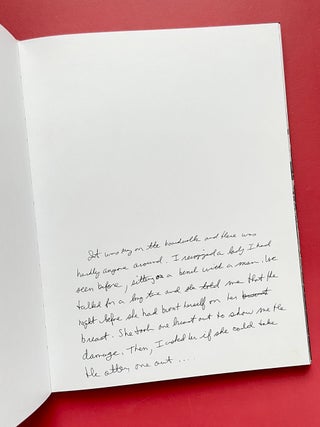 It was       on the boardwalk and there was
hardly anyone around. I recognized a lady I had
seen before, sitting on a bench with a man. We
talked for a long time and she told me that the
night before she had burnt herself on her breast
breast. She took one breast out to show me the
damage. Then, I asked her if she could take
the other one out ....